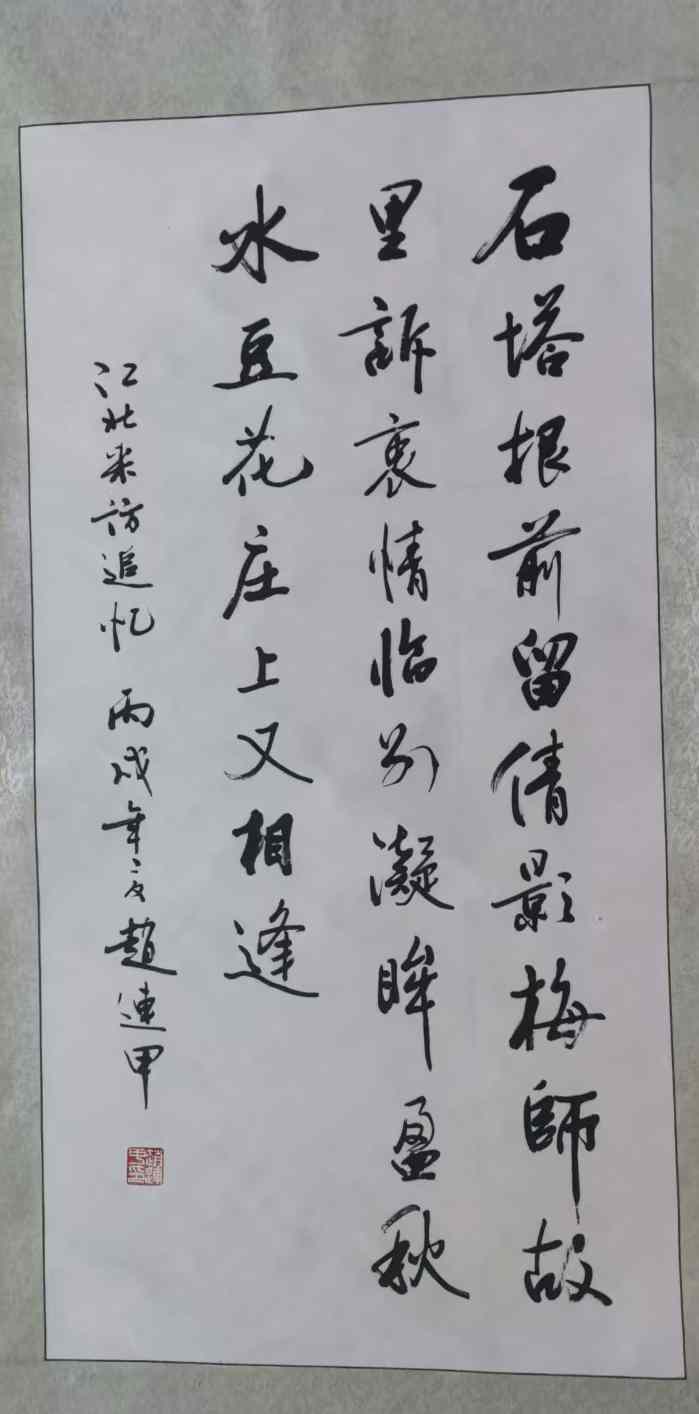 石塔根前留倩影梅師故
里訴衷情临别凝眸盈秋
水豆花庄上又相逢
江北采访追忆 丙戌年夏趙連甲